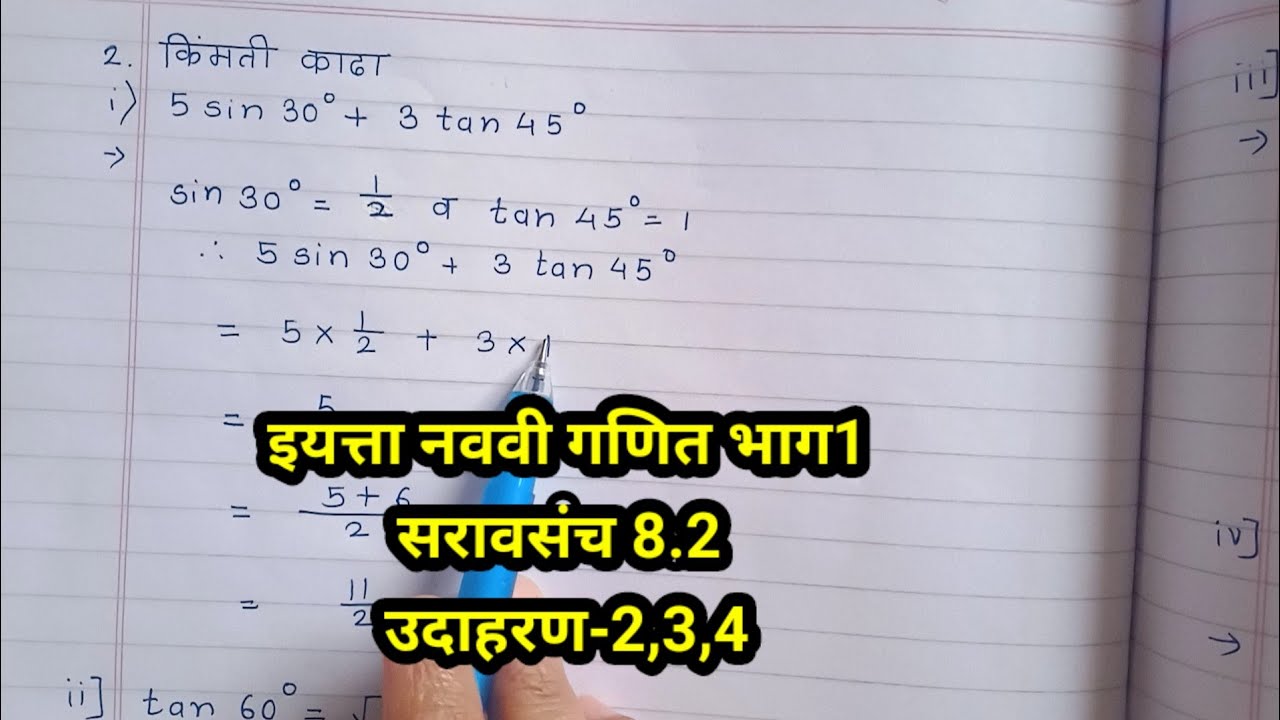 2. किंमती काढा
i) 5 sin 30° + 3 tan 45°
→
sin 30° = 1/2 व tan 45° = 1
∴ 5 sin 30° + 3 tan 45°
= 5 × 1/2 + 3 × 1
= 5
= 5 + 6 / 2
= 11/2
ii] tan 60° = √
इयत्ता नववी गणित भाग1
सरावसंच 8.2
उदाहरण-2,3,4
iii]
→
iv]
→